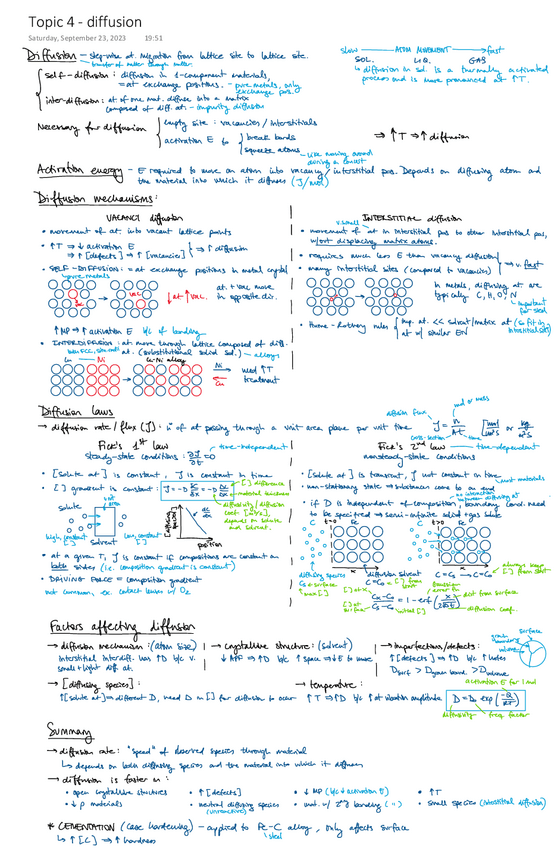 Topic 4 - diffusion
Saturday, September 23, 2023 19:51
Diffusion - step-wise at. migration from lattice site to lattice site.
transfer of matter through matter.
slow ATOM MOVEMENT fast
SOL. LIQ. GAS
↳ diffusion in sol. is a thermally activated process and is more pronounced at ↑T.
self-diffusion: diffusion in 1-component materials,
= at exchange positions. - pure metals, only exchange pos.
inter-diffusion: at. of one mat. diffuse into a matrix
composed of diff. at. - impurity diffusion
Necessary for diffusion
empty site: vacancies / interstitials
activation E to
break bonds
squeeze atoms
like moving around during a concert
⇒ ↑T ⇒ ↑ diffusion
Activation energy - E required to move an atom into vacancy/interstitial pos. Depends on diffusing atom and
the material into which it diffuses (J/mol)
Diffusion mechanisms:
VACANCY diffusion
• movement of at. into vacant lattice points
• ↑T ⇒ ↓ activation E
⇒ ↑[defects] ⇒ ↑[vacancies]
⇒ ↑ diffusion
• SELF-DIFFUSION: = at exchange positions in metal crystal
pure metals
vac.
vac.
↓ at. ↑ vac.
at. + vac move
in opposite dir.
↑MP ⇒ ↑ activation E b/c of bonding
• INTERDIFFUSION: at move through lattice composed of diff.
at. (substitutional solid sol.) - alloys
Cu Ni
Cu-Ni alloy
Ni
Cu
need ↑T
treatment
INTERSTITIAL diffusion
v. small
• movement of at in interstitial pos to other interstitial pos,
w/out displacing matrix atoms.
• requires much less E than vacancy diffusion
• many interstitial sites (compared to vacancies)
⇒ v. fast
in metals, diffusing at are
typically C, H, O, N
important for steel
• Hume-Rothery rules
imp. at. << solvent/matrix at (to fit in interstitial site)
at w/ similar EN
Diffusion laws
→ diffusion rate / flux (J): # of at passing through a unit area plane per unit time
diffusion flux
mol or mass
cross-section
Fick's 1st law
steady-state conditions: ∂J/∂t = 0
time-independent
• [solute at] is constant, J constant in time
• [ ] gradient is constant: J = -D
[ ] difference
material thickness
solute
unit area
high, constant [ ]
low, constant [ ]
diffusivity / diffusion
coef. [m²/s],
depends on solute
and solvent.
position
• at a given T, J is constant if compositions are constant on
both sides (i.e. composition gradient is constant)
• DRIVING FORCE = composition gradient
not common, ex. contact lenses w/ O2
Fick's 2nd law
nonsteady-state conditions
time-dependent
• [solute at] is transient, J not constant in time
most materials
• non-stationary state ⇒ substance comes to an end
• if D is independent of composition, boundary cond. need
to be specified ⇒ semi-infinite solid + gas state
C t=0 Fe
C t>0 Fe
diffusing species
diffusion solvent
Gaussian error fn
dist from surface
diffusion coef.
initial [ ]
Factors affecting diffusion
→ diffusion mechanism: (atom size)
Interstitial interdiff. has ↑D b/c v.
small + light diff. at.
→ crystalline structure: (solvent)
↓ APF ⇒ ↑D b/c ↑ space ⇒ ↓E to move
→ imperfection/defects:
↑[defects] ⇒ ↑D b/c ↑ holes
Dsurf > Dgrain bound > Dvolume
surface
grain boundary
volume
→ [diffusing species]:
↑[solute at] ⇒ different D, need Δ in [ ] for diffusion to occur
→ temperature:
↑T ⇒ ↑D b/c ↑ at vibration amplitude
activation E for 1 mol
D = D₀ exp(-Q/RT)
diffusivity
freq. factor
Summary
→ diffusion rate: "speed" of desired species through material
↳ depends on both diffusing species and the material into which it diffuses
→ diffusion is faster in:
• open crystalline structures • ↑[defects] • ↓ MP (b/c ↓ activation E) • ↑T
• ↓ρ materials • neutral diffusing species (unreactive) • mat. w/ 2°y bonding (") • small species (interstitial diffusion)
* CEMENTATION (case hardening) - applied to Fe-C alloy, only affects surface
steel
↳ ↑[C] ⇒ ↑ hardness